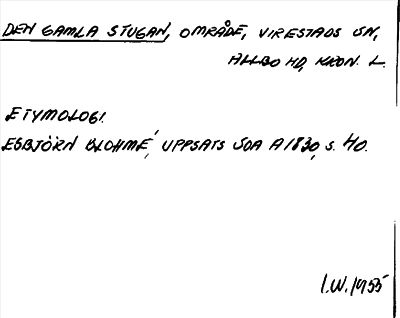 DEN GAMLA STUGAN, OMRÅDE, VIRESTADS SN,
ALLBO HD, KRON. L.
ETYMOLOGI.
ESBJÖRN BLOHMÉ, UPPSATS SOA A 1830, S. 40.
I.W. 1955